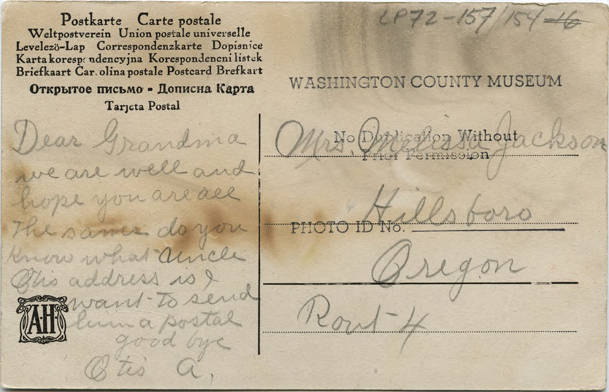 Postkarte Carte postale
Weltpostverein Union postale universelle
Levelező-Lap Correspondenzkarte Dopisnice
Karta korespondencyjna Korespondenční lístek
Briefkaart Carolina postale Postcard Brefkart
Открытое письмо - Дописна Карта
Tarjeta Postal
LP72-157/154 16
WASHINGTON COUNTY MUSEUM
No Duplication Without
Prior Permission
PHOTO ID No.
Dear Grandma
we are well and
hope you are all
the same do you
know what Uncle
Otis address is I
want to send
him a postal
good bye
Otis A.
AH
Mrs. Melissa Jackson
Hillsboro
Oregon
Rout 4